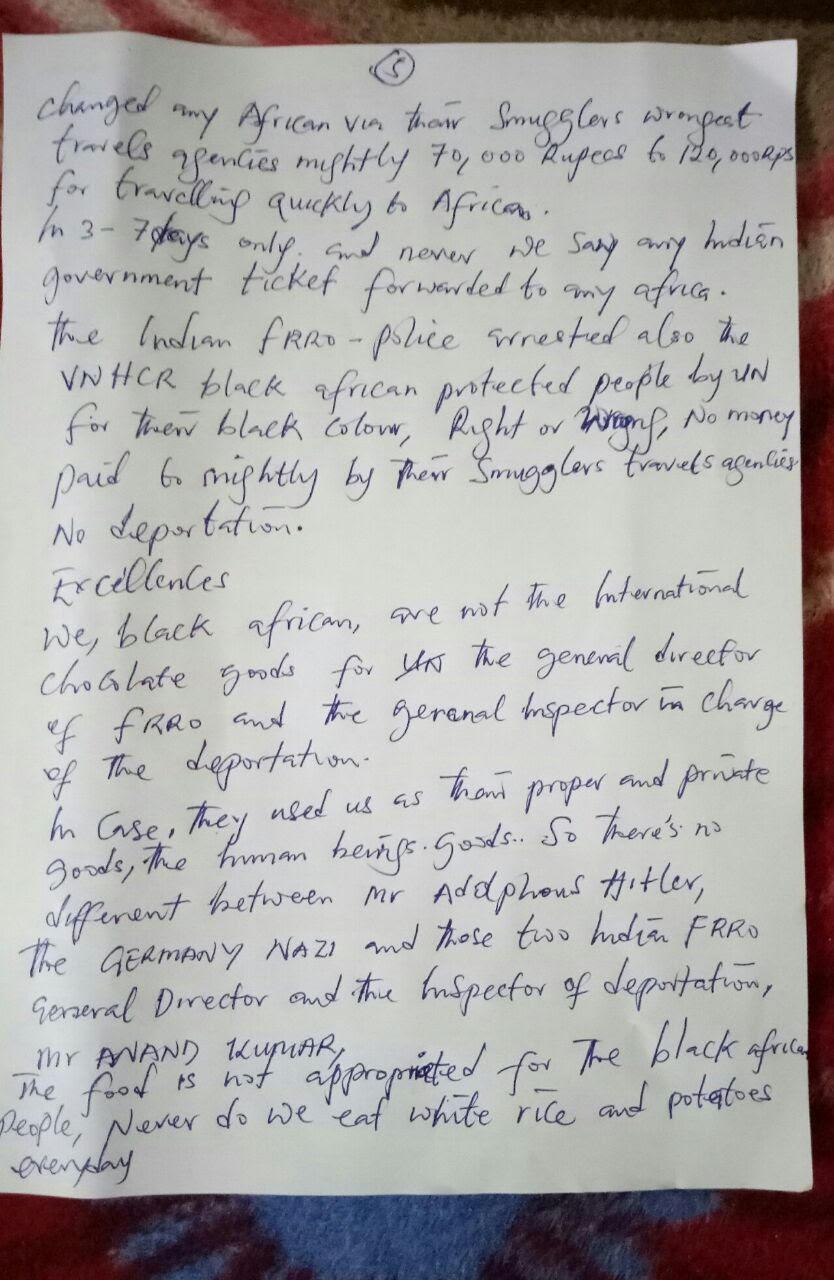 5
changed any African via their Smugglers wrongest
travels agencies mightly 70,000 Rupees to 120,000Rps
for travelling quickly to African.
In 3-7days only. and never we say any Indian
government ticket forwarded to any africa.
the Indian fRRO-police arrestied also the
VNHCR black african protected people by UN
for their black colour, Right or Wrong, No money
paid to mightly by their Smugglers travels agencies
No deportation.
Excellences
We, black african, are not the International
chocolate goods for the general director
of fRRO and the general Inspector in charge
of the deportation.
In Case, they used us as their proper and private
goods, the human beings. goods.. So there's no
different between Mr Adelphous Hitler,
the GERMANY NAZI and those two Indian FRRO
General Director and the Inspector of deportation,
Mr ANAND KUMAR,
The food is not appropriated for the black african
People, Never do we eat white rice and potatoes
everyday